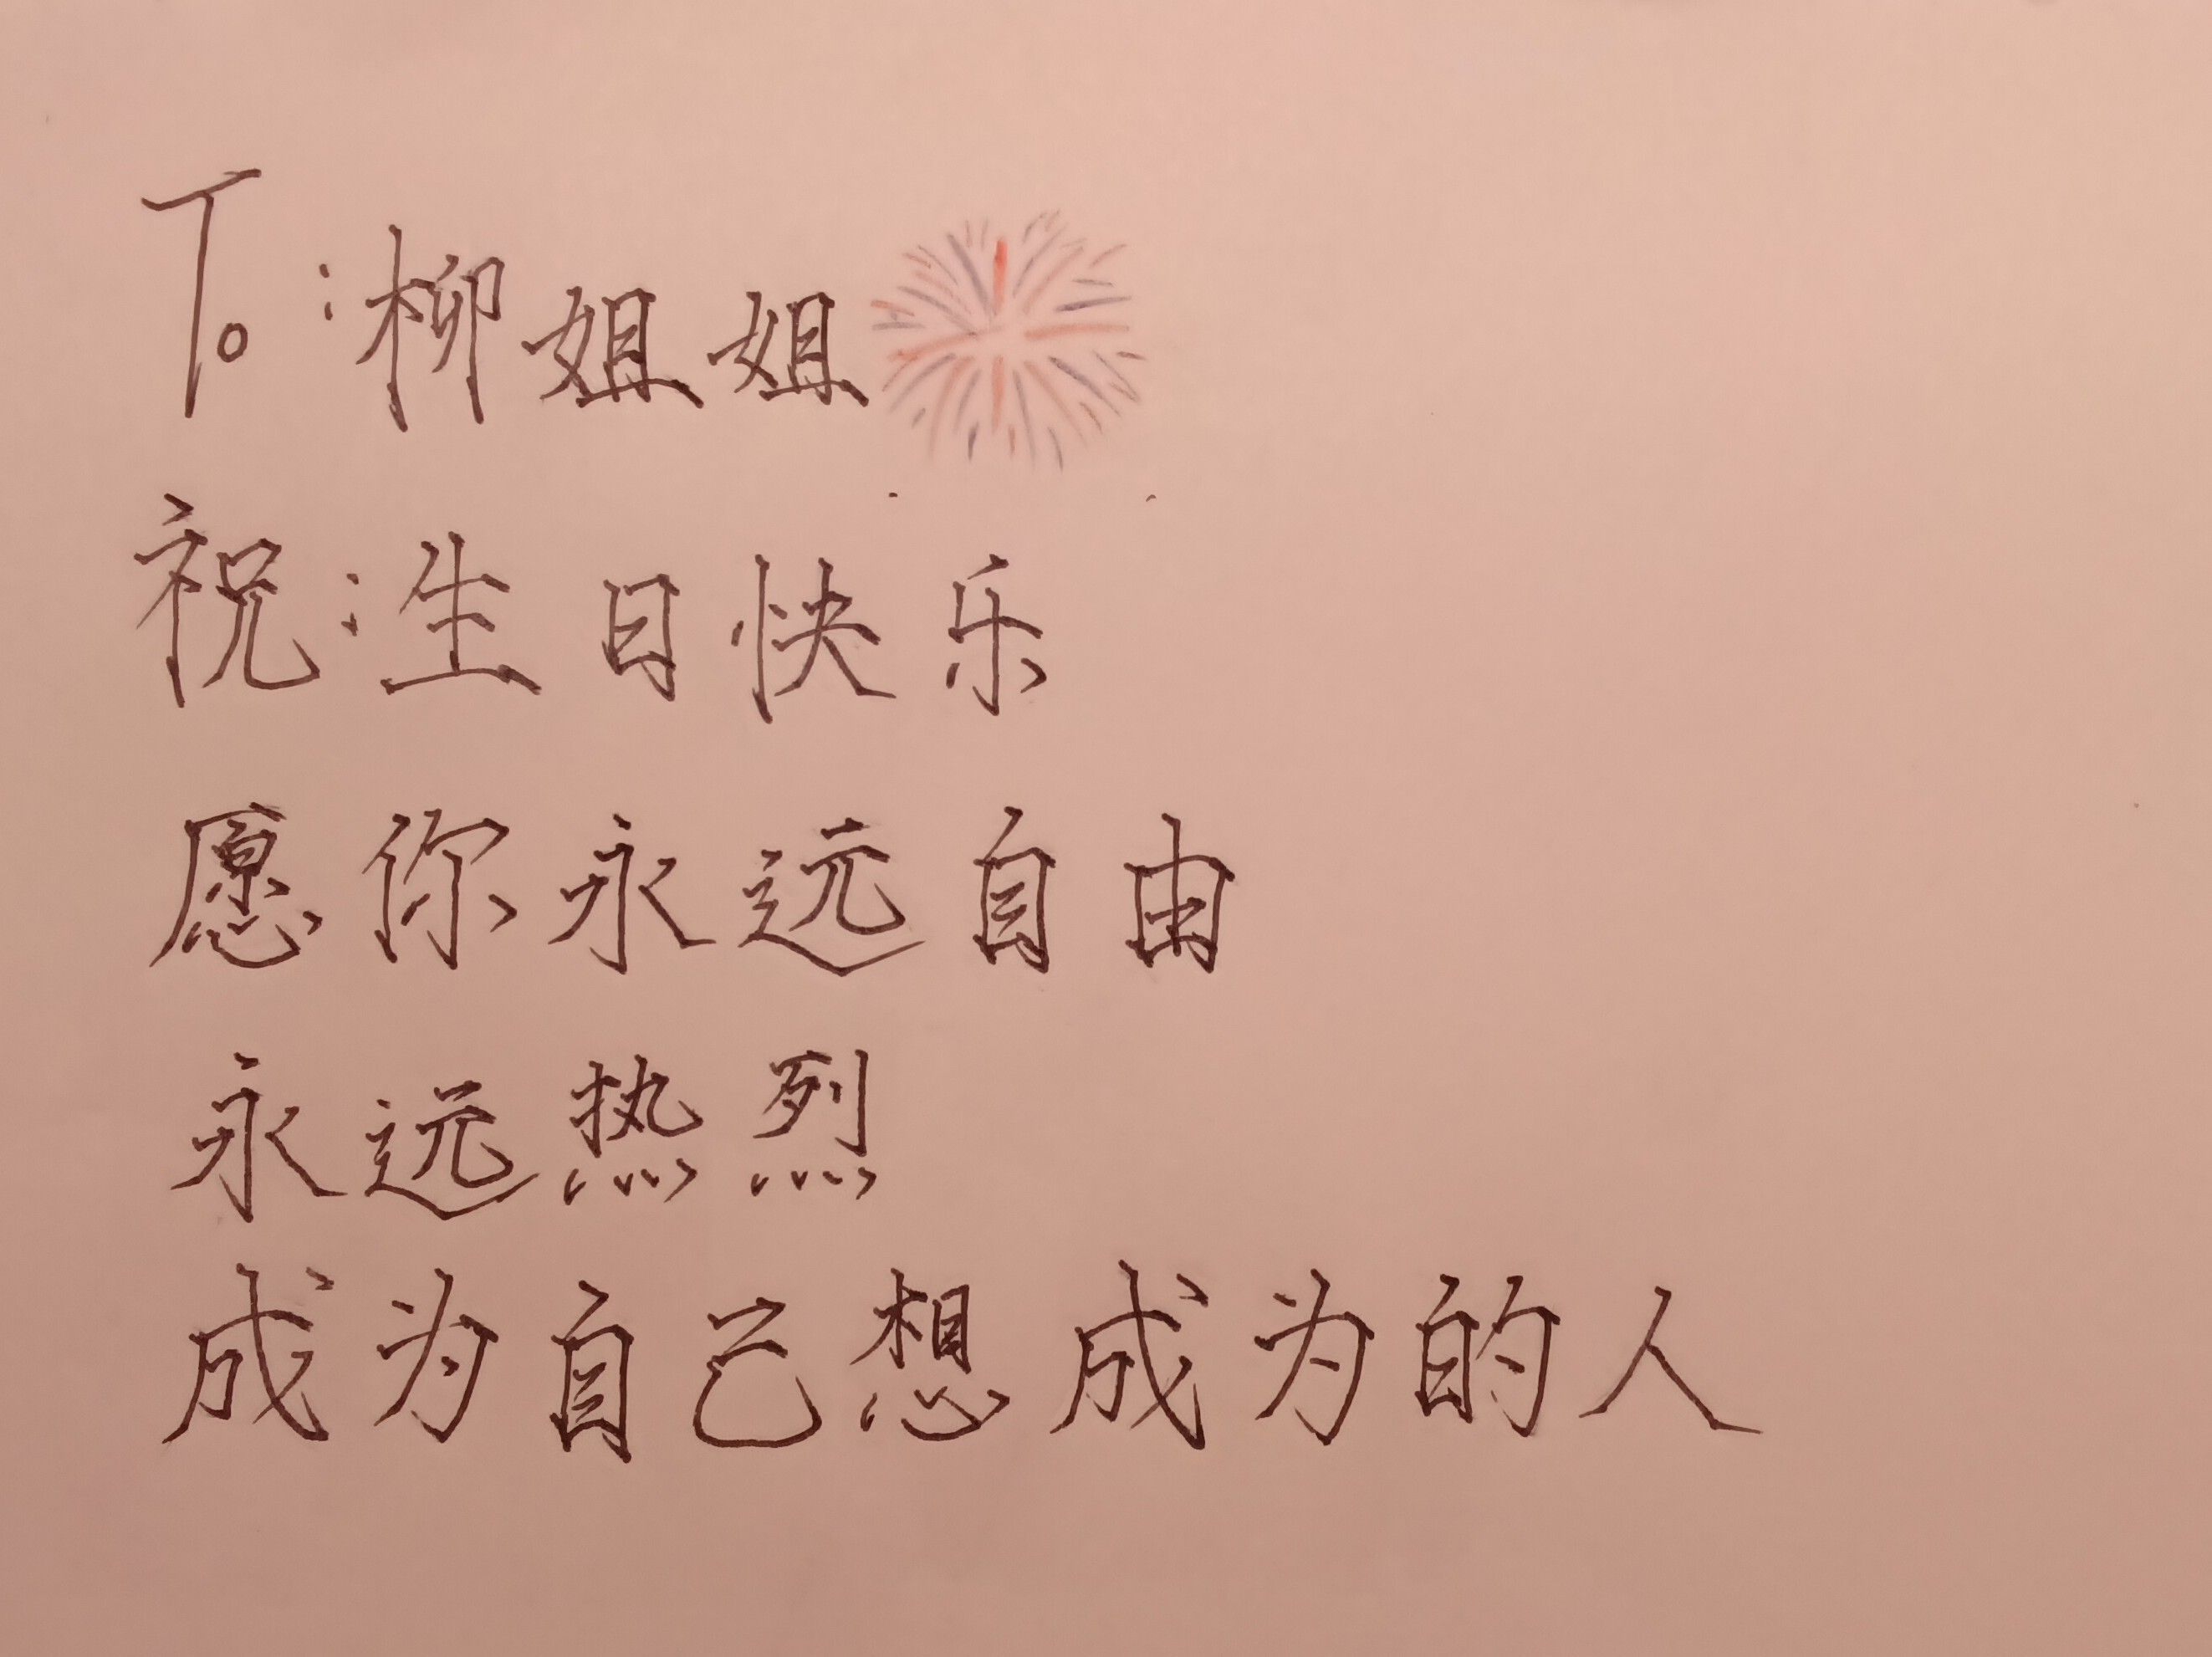 To:柳姐姐
祝:生日快乐
愿你永远自由
永远热烈
成为自己想成为的人